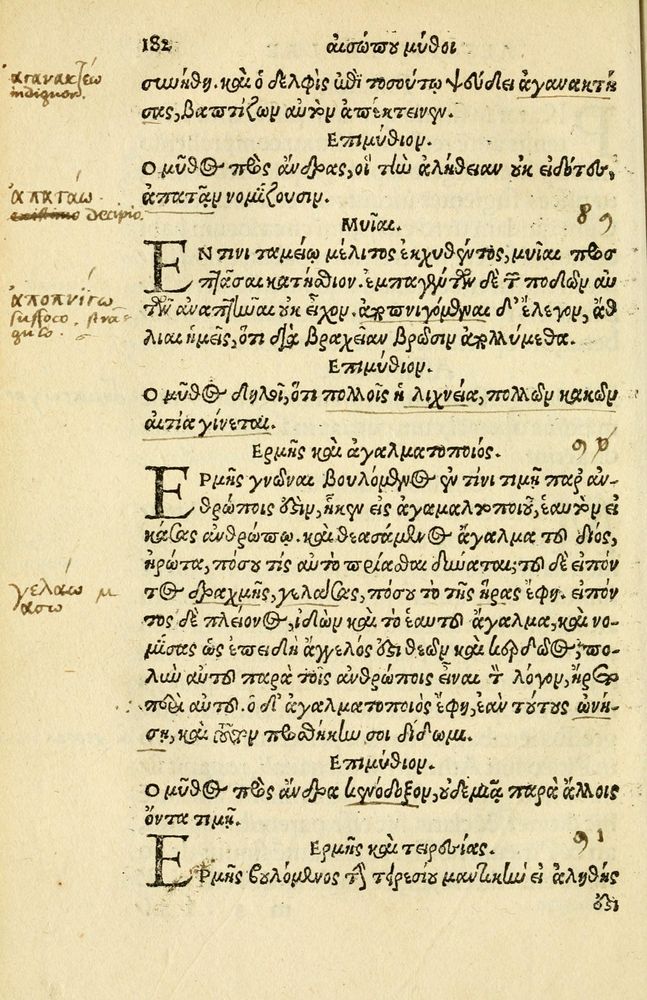 182 αἰσώπου μύθοι
ἀγανακτέω
indignor.
συνήθη. καὶ ὁ δελφὶς ἐπὶ τοσούτῳ ψεύδει ἀγανακτή
σας, βαπτίζων αὐτὸν ἀπέκτεινεν.
Επιμύθιον.
Ο μῦθος πρὸς ἄνδρας, οἳ τὴν ἀλήθειαν οὐκ εἰδότες,
ἀπατάω.
decipio.
ἀπατᾷν νομίζουσιν.
Μυῖαι. 89
ΕΝ τινι ταμείῳ μέλιτος ἐκχυθέντος, μυῖαι προσ
πτᾶσαι κατήσθιον. ἐμπαγέντων δὲ τῶν ποδῶν αὐ
ἀποπνίγω
suffoco. stran-
gulo.
τῶν ἀναπτῆναι οὐκ εἶχον. ἀποπνιγόμεναι δ' ἔλεγον, ἄθ
λιαι ἡμεῖς, ὅτι διὰ βραχεῖαν βρῶσιν ἀπολλύμεθα.
Επιμύθιον.
Ο μῦθος δηλοῖ, ὅτι πολλοῖς ἡ λιχνεία, πολλῶν κακῶν
αἰτία γίνεται.
Ερμῆς καὶ ἀγαλματοποιός. 90
ΕΡμῆς γνῶναι βουλόμενος ἐν τίνι τιμῇ παρ' ἀν-
θρώποις ἐστὶν, ἧκεν εἰς ἀγαλματοποιοῦ, ἑαυτὸν εἰ
κάσας ἀνθρώπῳ. καὶ θεασάμενος ἄγαλμα τοῦ διὸς,
ἠρώτα, πόσου τίς αὐτὸ πρίασθαι δύναται; τοῦ δὲ εἰπόν
γελάω μ
ασω
τος δραχμῆς, γελάσας, πόσου τὸ τῆς ἥρας ἔφη. εἰπόν
τος δὲ πλείονος, ἰδὼν καὶ τὸ ἑαυτοῦ ἄγαλμα, καὶ νο-
μίσας ὡς ἐπειδὴ ἄγγελός ἐστι θεῶν καὶ κερδῷος, πο-
λὺν αὐτοῦ παρὰ τοῖς ἀνθρώποις εἶναι τὸν λόγον, ἤρετο
περὶ αὐτοῦ. ὁ δ' ἀγαλματοποιὸς ἔφη, ἐὰν τούτους ὠνή-
σῃ, καὶ τοῦτον προσθήκην σοι δίδωμι.
Επιμύθιον.
Ο μῦθος πρὸς ἄνδρα κενόδοξον, οὐδεμιᾷ παρὰ ἄλλοις
ὄντα τιμῇ.
Ερμῆς καὶ τειρεσίας. 91
ΕΡμῆς βουλόμενος τὴν τειρεσίου μαντικὴν εἰ ἀληθής
ἐστι